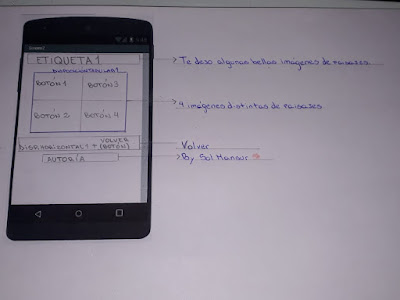 ETIQUETA 1
DISPOSICIONTABULAR1
BOTÓN 1
BOTÓN 3
BOTÓN 2
BOTÓN 4
DISPHORIZONTAL1 + VOLVER (BOTÓN)
AUTORÍA
Te dejo algunas bellas imágenes de paisajes
4 imágenes distintas de paisajes
Volver
By Sol Mansur